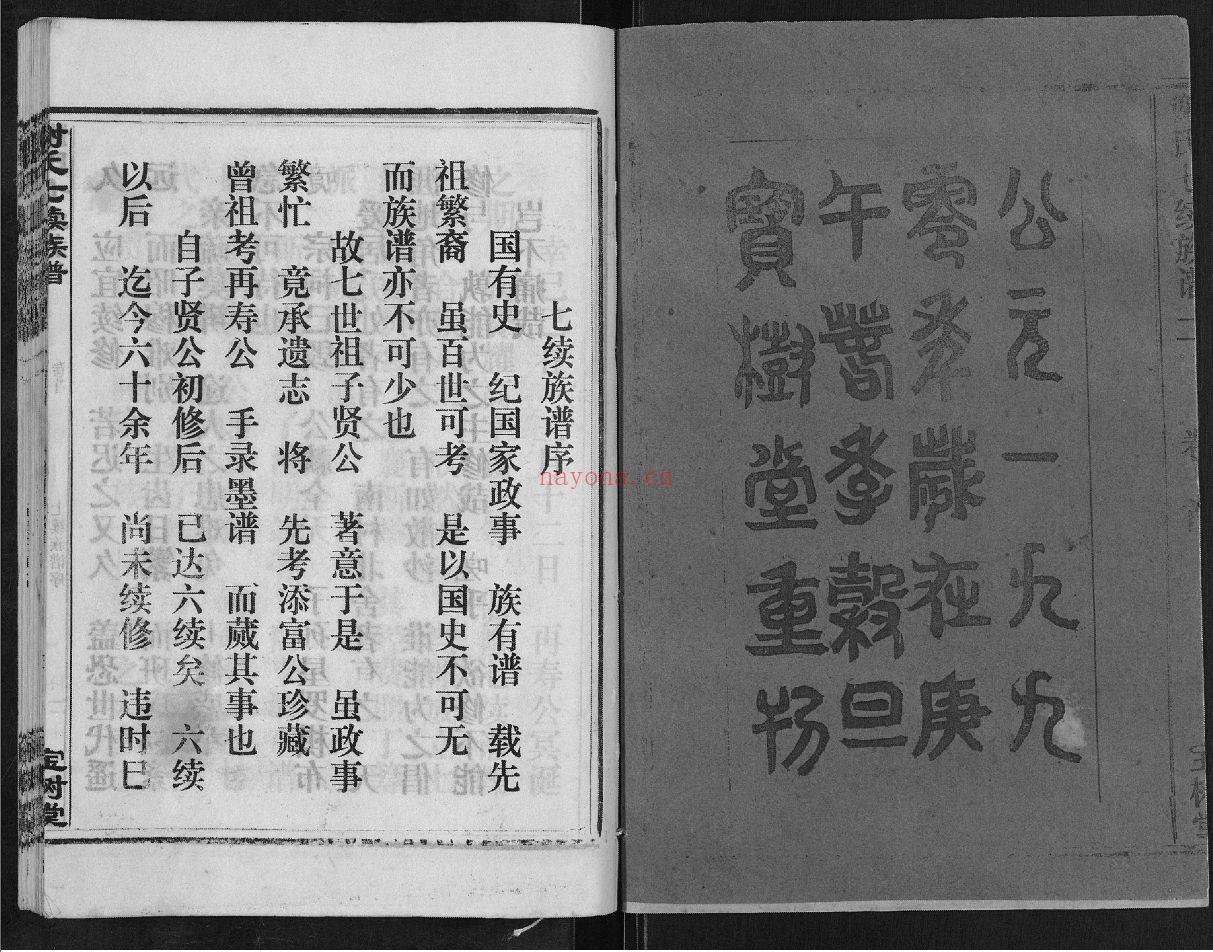 公元一九九
零年歲在庚
午萅季穀旦
寶樹堂重
七续族谱序
国有史　纪国家政事　族有谱　载先
祖繁裔　虽百世可考　是以国史不可无
而族谱亦不可少也
故七世祖子贤公　著意于是　虽政事
繁忙　竟承遗志　将　先考添富公珍藏
曾祖考再寿公　手录墨谱　而蒇其事也
自子贤公初修后　已达六续矣　六续
以后　迄今六十余年　尚未续修　违时巳
氏七续族谱　宝树堂
nayona.cn